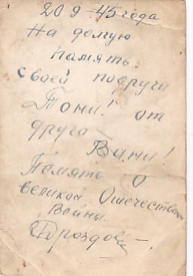 20 9 45 года
На долгую
память.
своей подруги
Тони! от
друга
Вани!
Память о
великой Отечествен
Войны.